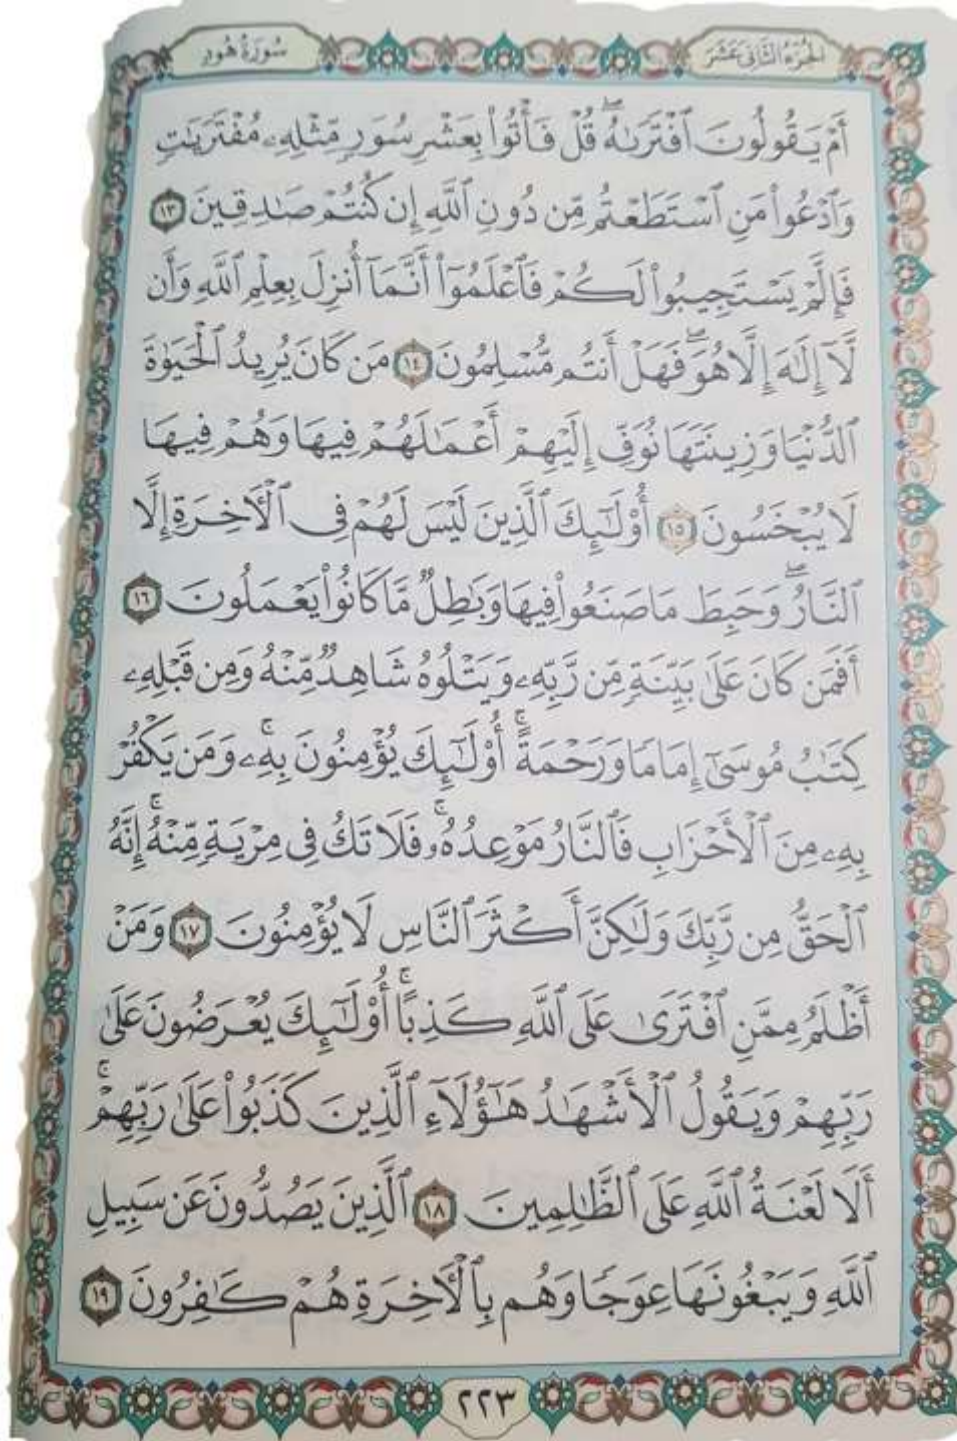 الجُزْءُ الثَّانِي عَشَرَ سُورَةُ هُودٍ
أَمْ يَقُولُونَ ٱفْتَرَىٰهُۖ قُلْ فَأْتُوا۟ بِعَشْرِ سُوَرٍ مِّثْلِهِۦ مُفْتَرَيَٰتٍ
وَٱدْعُوا۟ مَنِ ٱسْتَطَعْتُم مِّن دُونِ ٱللَّهِ إِن كُنتُمْ صَٰدِقِينَ ١٣
فَإِلَّمْ يَسْتَجِيبُوا۟ لَكُمْ فَٱعْلَمُوٓا۟ أَنَّمَآ أُنزِلَ بِعِلْمِ ٱللَّهِ وَأَن
لَّآ إِلَٰهَ إِلَّا هُوَۖ فَهَلْ أَنتُم مُّسْلِمُونَ ١٤ مَن كَانَ يُرِيدُ ٱلْحَيَوٰةَ
ٱلدُّنْيَا وَزِينَتَهَا نُوَفِّ إِلَيْهِمْ أَعْمَٰلَهُمْ فِيهَا وَهُمْ فِيهَا
لَا يُبْخَسُونَ ١٥ أُو۟لَٰٓئِكَ ٱلَّذِينَ لَيْسَ لَهُمْ فِى ٱلْـَٔاخِرَةِ إِلَّا
ٱلنَّارُۖ وَحَبِطَ مَا صَنَعُوا۟ فِيهَا وَبَٰطِلٌ مَّا كَانُوا۟ يَعْمَلُونَ ١٦
أَفَمَن كَانَ عَلَىٰ بَيِّنَةٍ مِّن رَّبِّهِۦ وَيَتْلُوهُ شَاهِدٌ مِّنْهُ وَمِن قَبْلِهِۦ
كِتَٰبُ مُوسَىٰٓ إِمَامًا وَرَحْمَةًۚ أُو۟لَٰٓئِكَ يُؤْمِنُونَ بِهِۦۚ وَمَن يَكْفُرْ
بِهِۦ مِنَ ٱلْأَحْزَابِ فَٱلنَّارُ مَوْعِدُهُۥۚ فَلَا تَكُ فِى مِرْيَةٍ مِّنْهُۚ إِنَّهُ
ٱلْحَقُّ مِن رَّبِّكَ وَلَٰكِنَّ أَكْثَرَ ٱلنَّاسِ لَا يُؤْمِنُونَ ١٧ وَمَنْ
أَظْلَمُ مِمَّنِ ٱفْتَرَىٰ عَلَى ٱللَّهِ كَذِبًاۚ أُو۟لَٰٓئِكَ يُعْرَضُونَ عَلَىٰ
رَبِّهِمْ وَيَقُولُ ٱلْأَشْهَٰدُ هَٰٓؤُلَآءِ ٱلَّذِينَ كَذَبُوا۟ عَلَىٰ رَبِّهِمْۚ
أَلَا لَعْنَةُ ٱللَّهِ عَلَى ٱلظَّٰلِمِينَ ١٨ ٱلَّذِينَ يَصُدُّونَ عَن سَبِيلِ
ٱللَّهِ وَيَبْغُونَهَا عِوَجًا وَهُم بِٱلْـَٔاخِرَةِ هُمْ كَٰفِرُونَ ١٩
٢٢٣